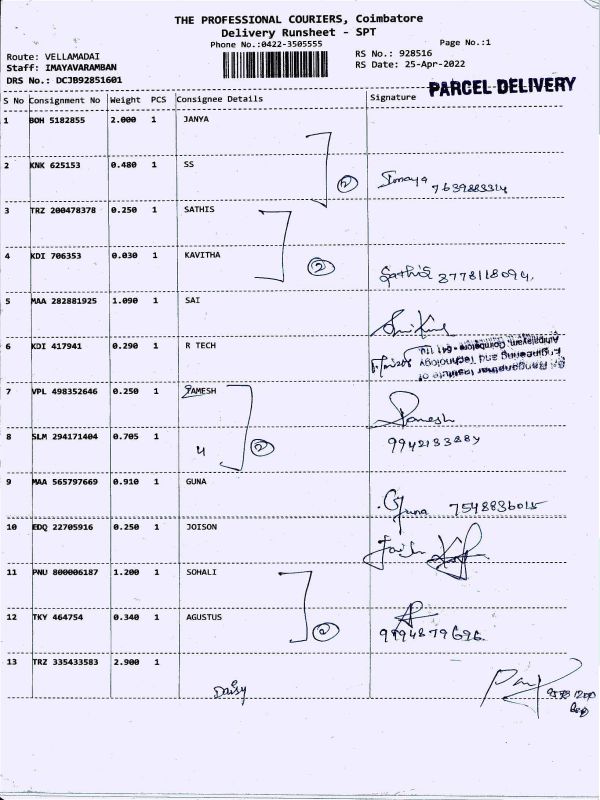 THE PROFESSIONAL COURIERS, Coimbatore
Delivery Runsheet - SPT
Phone No.:0422-3505555
Page No.:1
Route: VELLAMADAI
RS No.: 928516
Staff: IMAYAVARAMBAN
RS Date: 25-Apr-2022
DRS No.: DCJB92851601
PARCEL DELIVERY
S No Consignment No Weight PCS Consignee Details Signature
1 BOH 5182855 2.000 1 JANYA
2 KNK 625153 0.480 1 SS
2 Imaya 7639883314
3 TRZ 200478378 0.250 1 SATHIS
4 KDI 706353 0.030 1 KAVITHA
2 Sathis 8778118094
5 MAA 282881925 1.090 1 SAI
6 KDI 417941 0.290 1 R TECH
Sri Ranganathar Institute of
Engineering and Technology
Athipalayam, Coimbatore - 641 110.
7 VPL 498352646 0.250 1 RAMESH
Ramesh
8 SLM 294171404 0.705 1
4 2
9 MAA 565797669 0.910 1 GUNA
Guna 7548836015
10 EDQ 22705916 0.250 1 JOISON
11 PNU 800006187 1.200 1 SOHALI
12 TKY 464754 0.340 1 AGUSTUS
2 9994879696
13 TRZ 335433583 2.900 1
Daisy